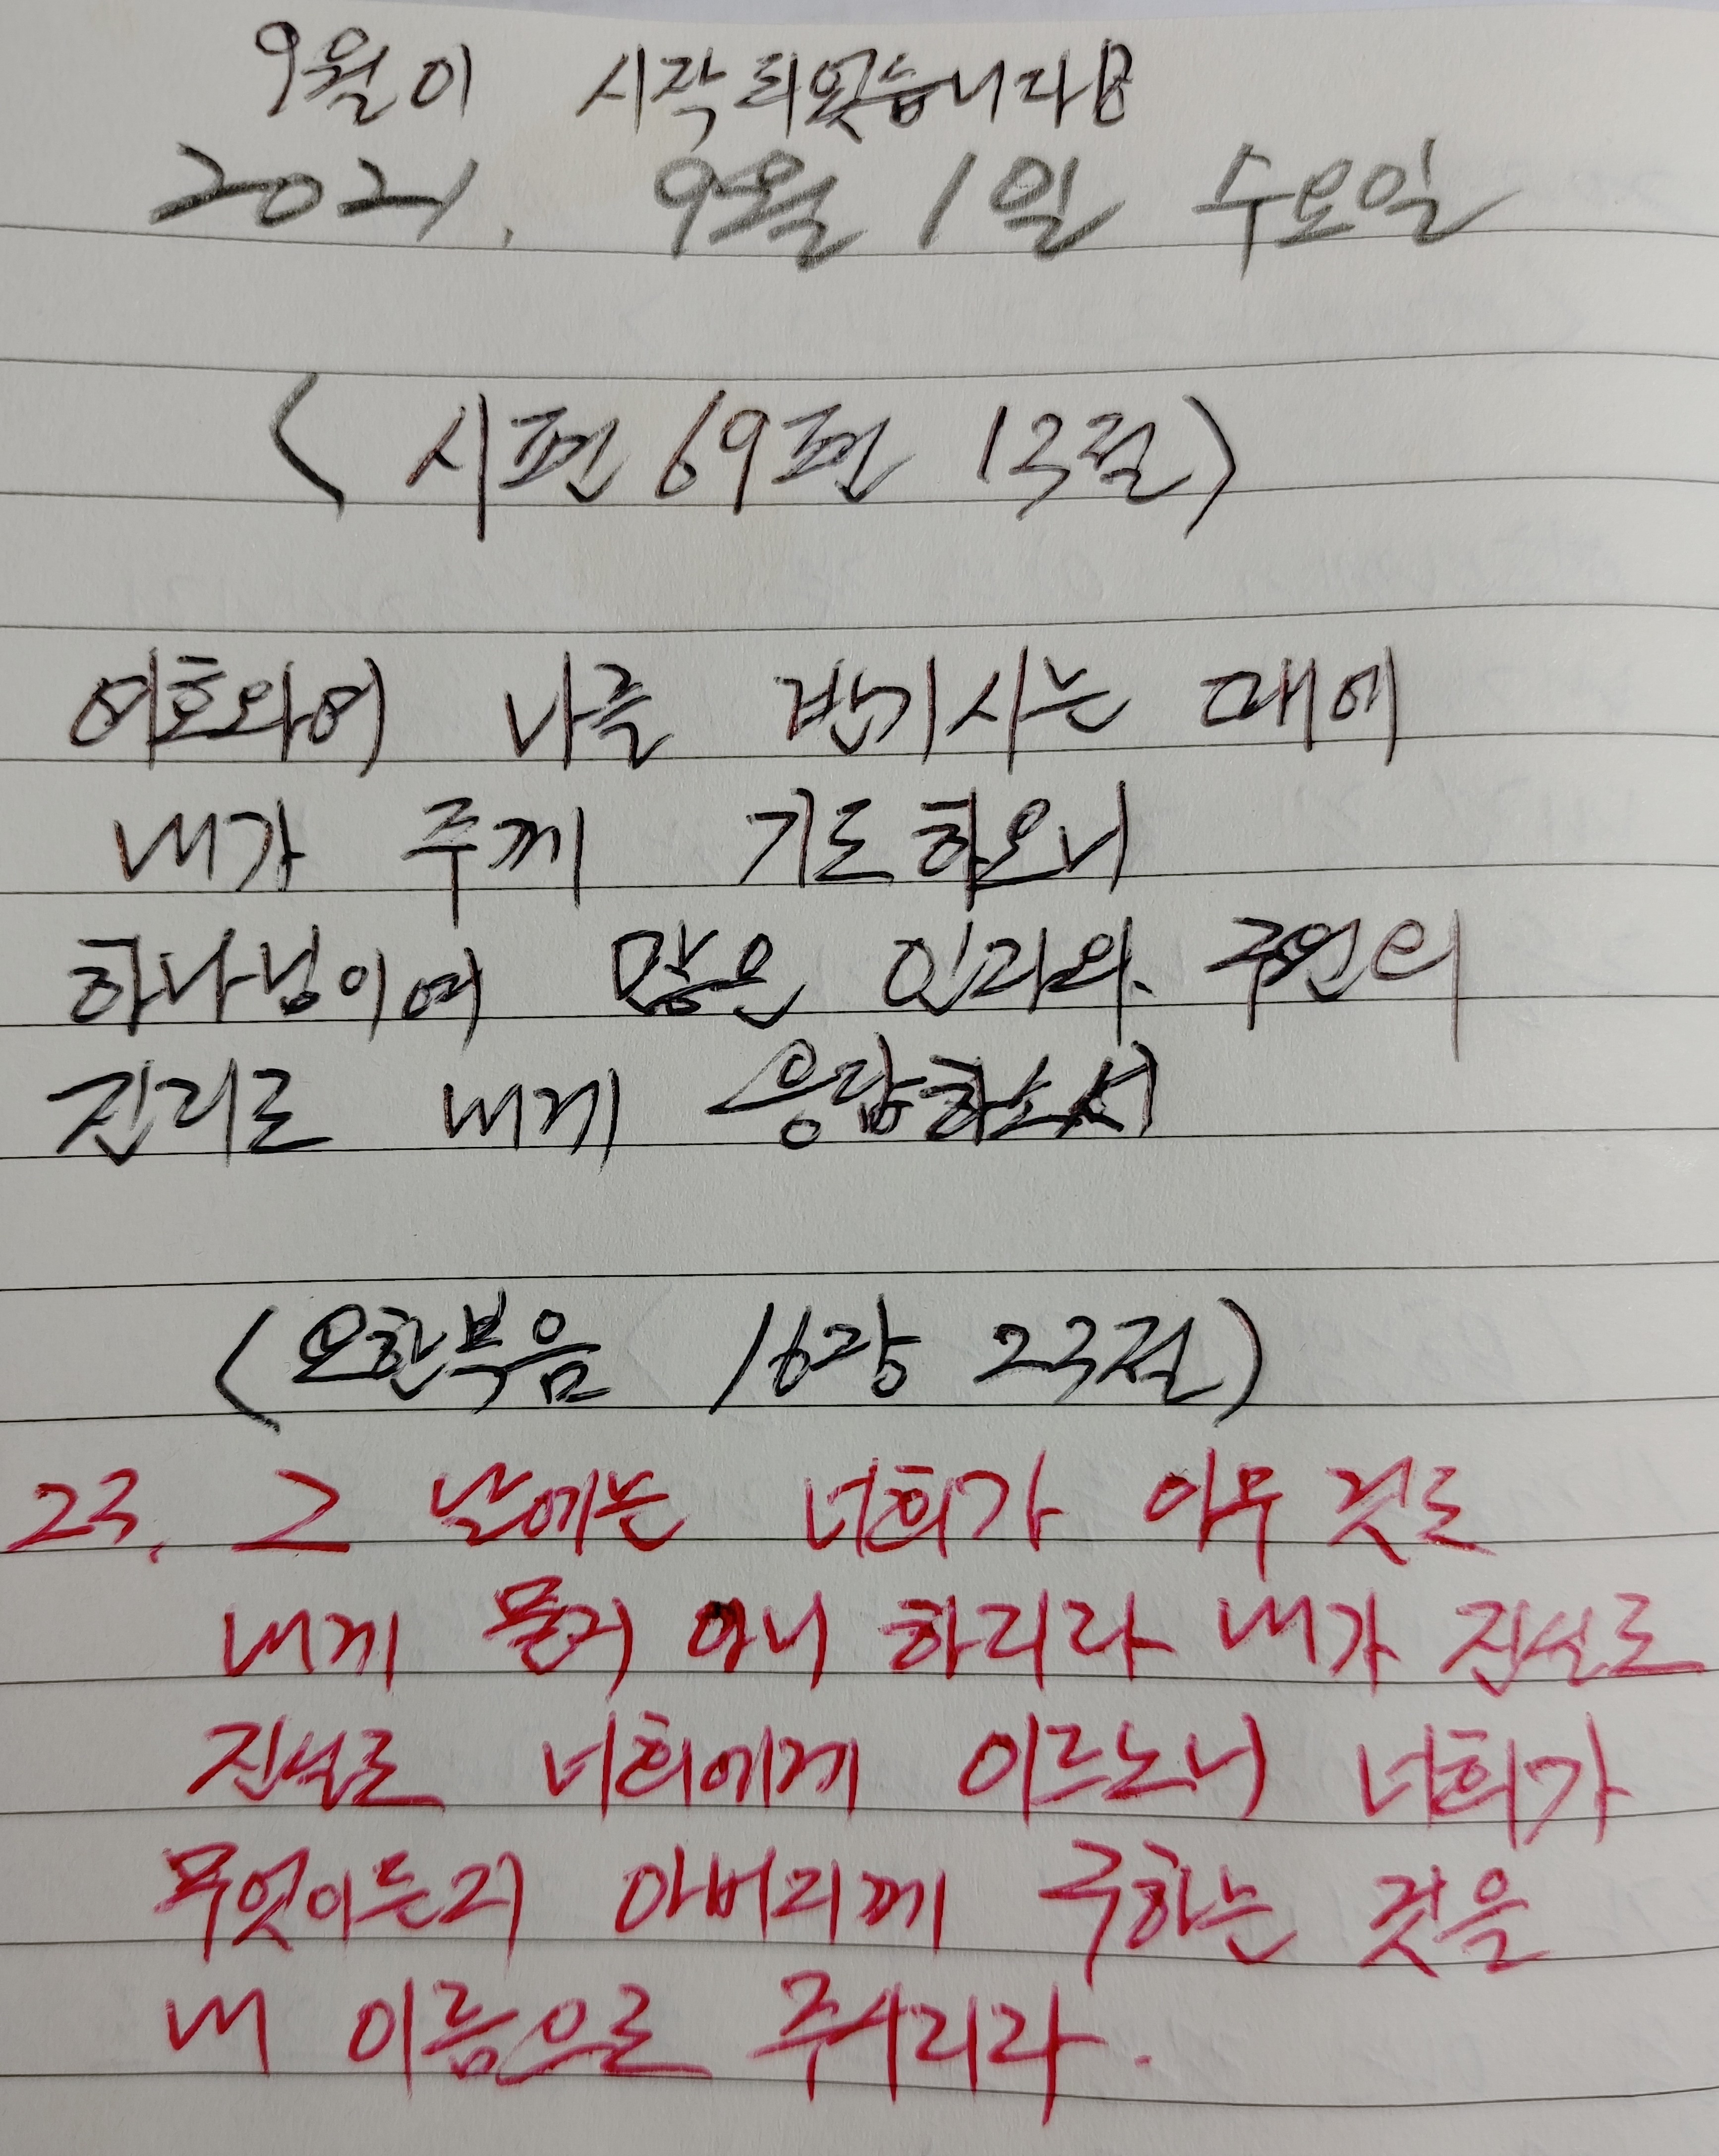 9월이 시작되었습니다
2021. 9월 1일 수요일
(시편 69편 13절)
여호와여 나를 반기시는 때에
내가 주께 기도하오니
하나님이여 많은 인자와 구원의
진리로 내게 응답하소서
(요한복음 16장 23절)
23. 그 날에는 너희가 아무 것도
내게 묻지 아니 하리라 내가 진실로
진실로 너희에게 이르노니 너희가
무엇이든지 아버지께 구하는 것을
내 이름으로 주시리라.